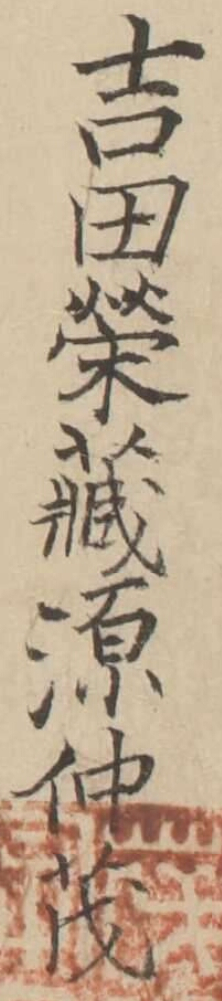 吉田榮藏源仲茂